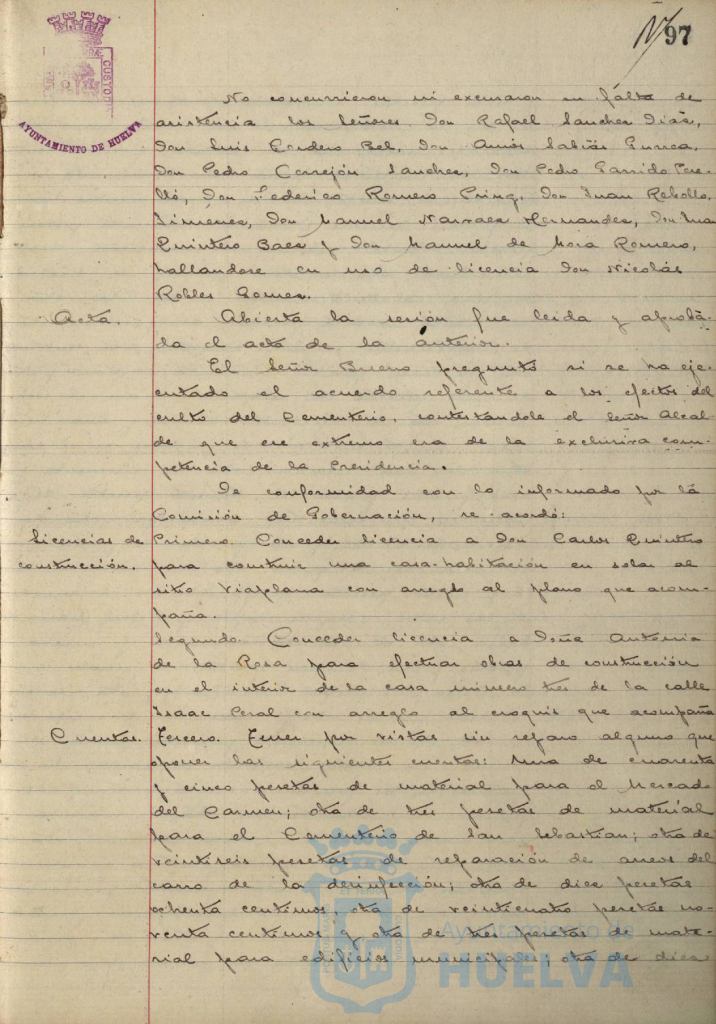 97
CUSTODIA
AYUNTAMIENTO DE HUELVA
No concurrieron ni excusaron su falta de
asistencia los Señores Don Rafael Sanchez Díaz,
Don Luis Cordero Bel, Don Amós Sabrás Gurrea,
Don Pedro Cerrejón Sanchez, Don Pedro Garrido Pere-
lló, Don Federico Romero Pring, Don Juan Rebollo
Jimenez, Don Manuel Narvaez Hernandez, Don Juan
Quintero Baez y Don Manuel de Mora Romero,
hallandose en uso de licencia Don Nicolás
Robles Gomez.
Acta.
Abierta la sesión fue leida y aproba-
da el acta de la anterior.
El Señor Bueno preguntó si se ha eje-
cutado el acuerdo referente a los efectos del
culto del Cementerio, contestándole el Señor Alcal-
de que ese extremo era de la exclusiva com-
petencia de la Presidencia.
De conformidad con lo informado por la
Comisión de Gobernación, se acordó:
Licencias de
construcción.
Primero. Conceder licencia a Don Carlos Quintero
para construir una casa-habitación en solar al
sitio Viaplana con arreglo al plano que acom-
paña.
Segundo. Conceder licencia a Doña Antonia
de la Rosa para efectuar obras de construcción
en el interior de la casa número tres de la calle
Isaac Peral con arreglo al croquis que acompaña
Cuentas.
Tercero. Tener por vistas sin reparo alguno que
oponer las siguientes cuentas: Una de cuarenta
y cinco pesetas de material para el Mercado
del Carmen; otra de tres pesetas de material
para el Cementerio de San Sebastian; otra de
veintiseis pesetas de reparación de arreos del
carro de la desinfección; otra de diez pesetas
ochenta centimos, otra de veinticuatro pesetas no-
venta centimos y otra de tres pesetas de mate-
rial para edificios municipales; otra de diez
Ayuntamiento de
HUELVA